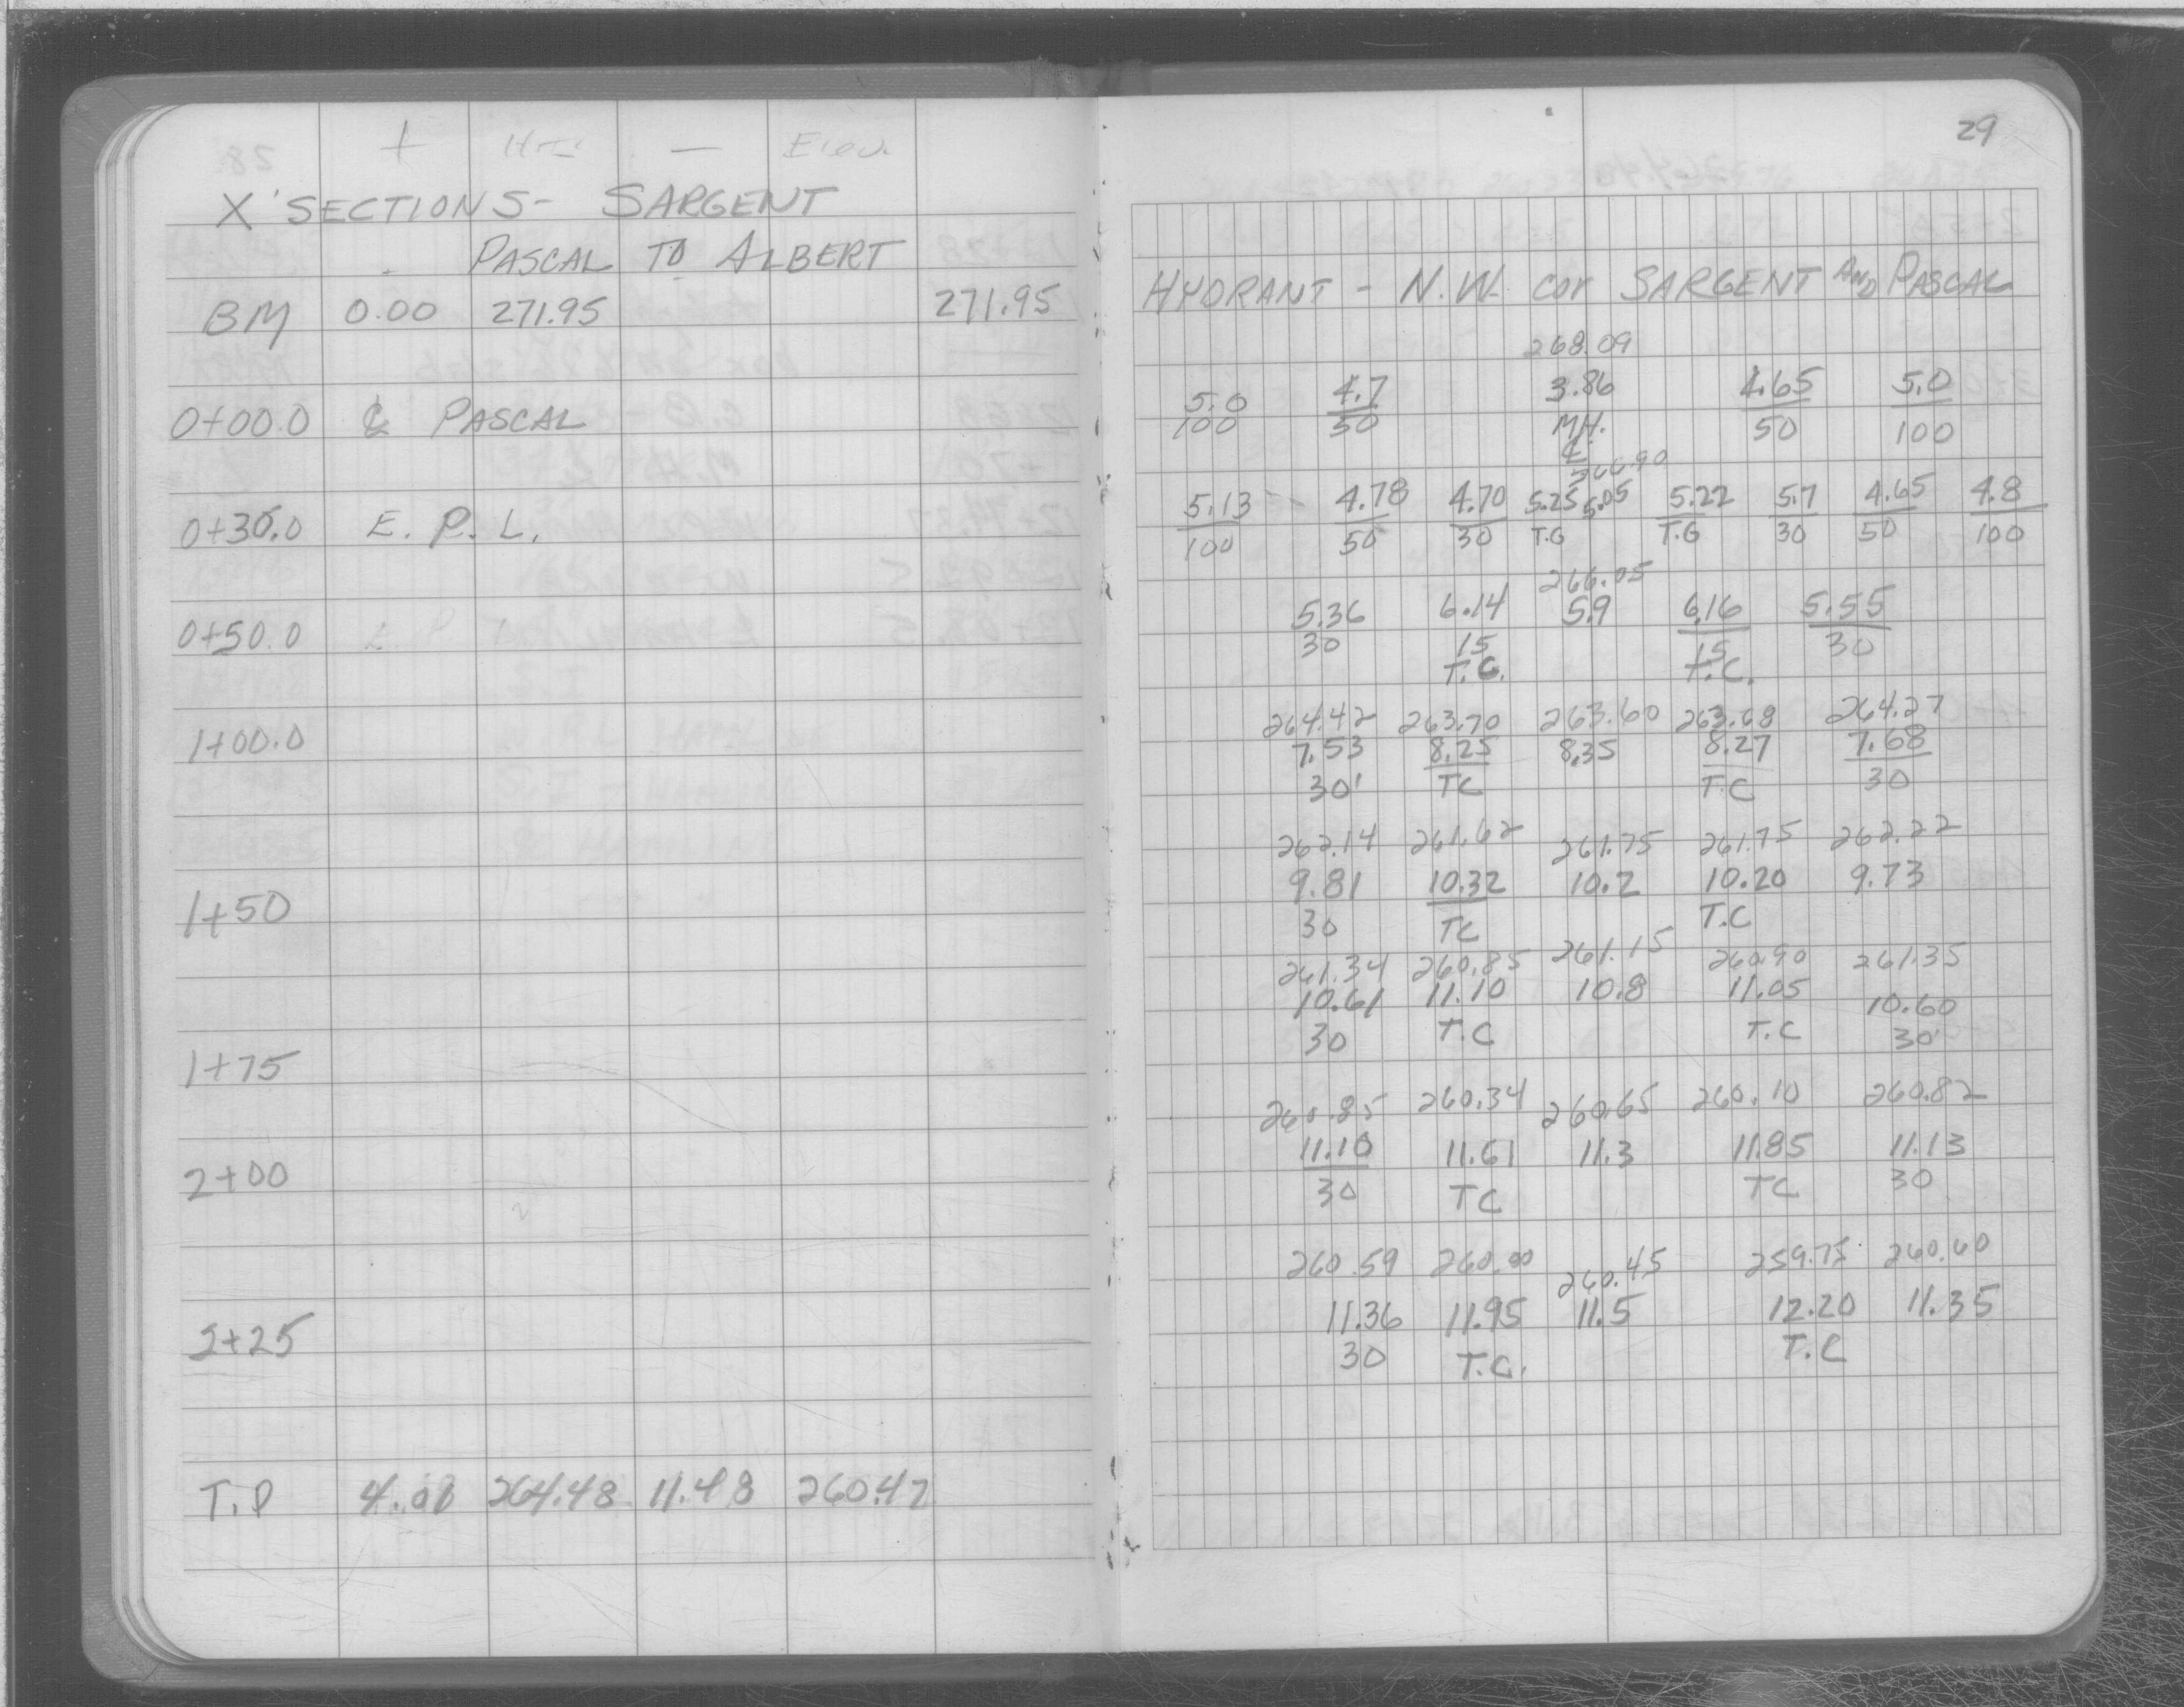 + HI - Elev.
X'SECTIONS- SARGENT
PASCAL TO ALBERT
BM 0.00 271.95 271.95
0+00.0 ℄ PASCAL
0+30.0 E. P. L.
0+50.0
1+00.0
1+50
1+75
2+00
2+25
T.P 4.01 264.48 11.48 260.47
29
HYDRANT - N.W. cor SARGENT AND PASCAL
268.09
5.0 4.7 3.86 4.65 5.0
100 50 MH. 50 100
℄
266.90
5.13 4.78 4.70 5.25 5.05 5.22 5.7 4.65 4.8
100 50 30 T.G T.G 30 50 100
266.05
5.36 6.14 5.9 6.16 5.55
30 15 15 30
T.C. T.C.
264.42 263.70 263.60 263.68 264.27
7.53 8.25 8.35 8.27 7.68
30' TC T.C 30
262.14 261.62 261.75 261.75 262.22
9.81 10.32 10.2 10.20 9.73
30 TC T.C
261.34 260.85 261.15 260.90 261.35
10.61 11.10 10.8 11.05 10.60
30 T.C T.C 30'
260.85 260.34 260.65 260.10 260.82
11.10 11.61 11.3 11.85 11.13
30 TC TC 30
260.59 260.00 260.45 259.75 260.60
11.36 11.95 11.5 12.20 11.35
30 T.C. T.C